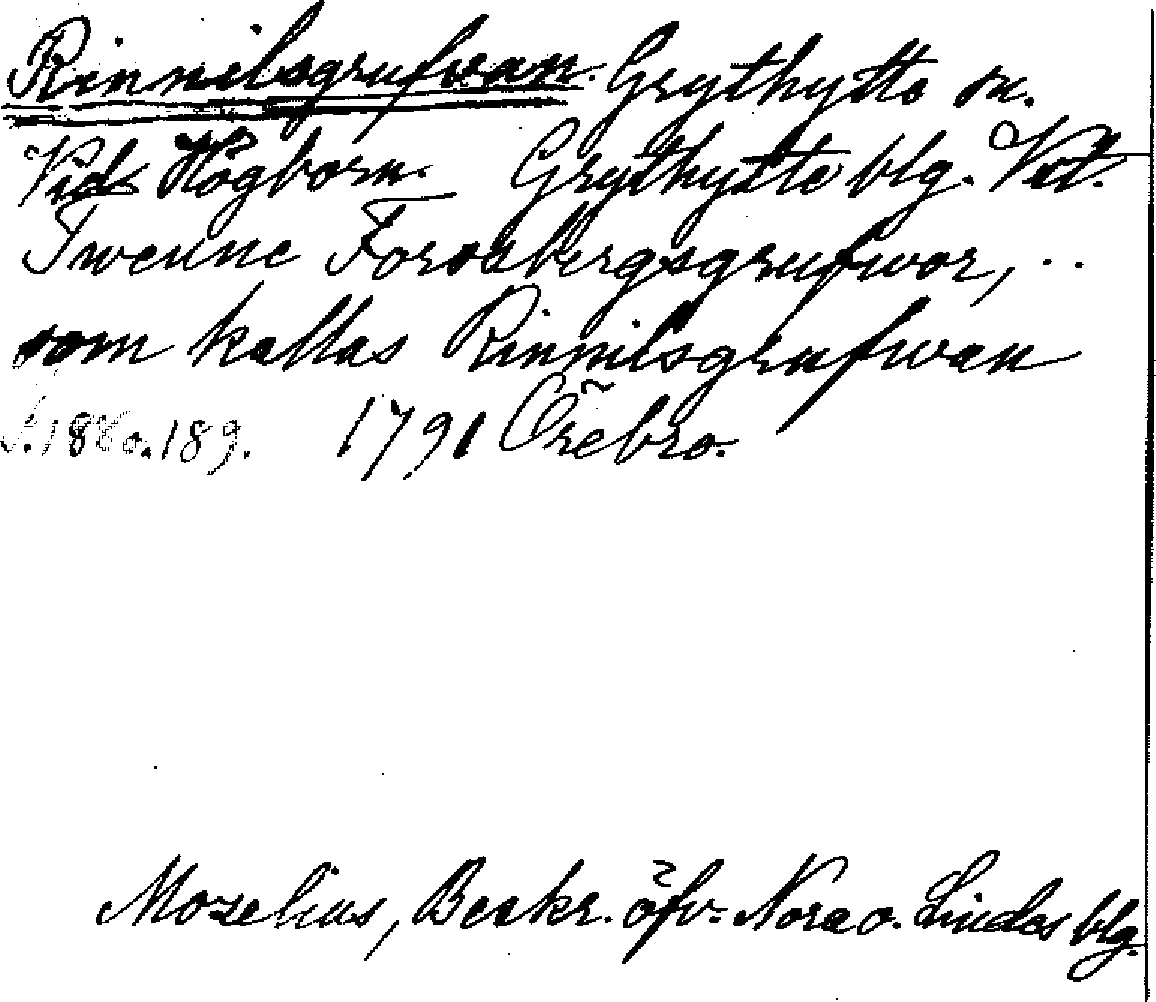 Rinnilsgrufwan. Grythytte sn.
Vid Högborn. Grythytte blg. Vstm.
Twenne Forssbergsgrufwor, ..
som kallas Rinnilsgrufwan
s. 188 o. 189. 1791 Örebro.
Mozelius, Beskr. öfv. Nora o. Lindes blg.